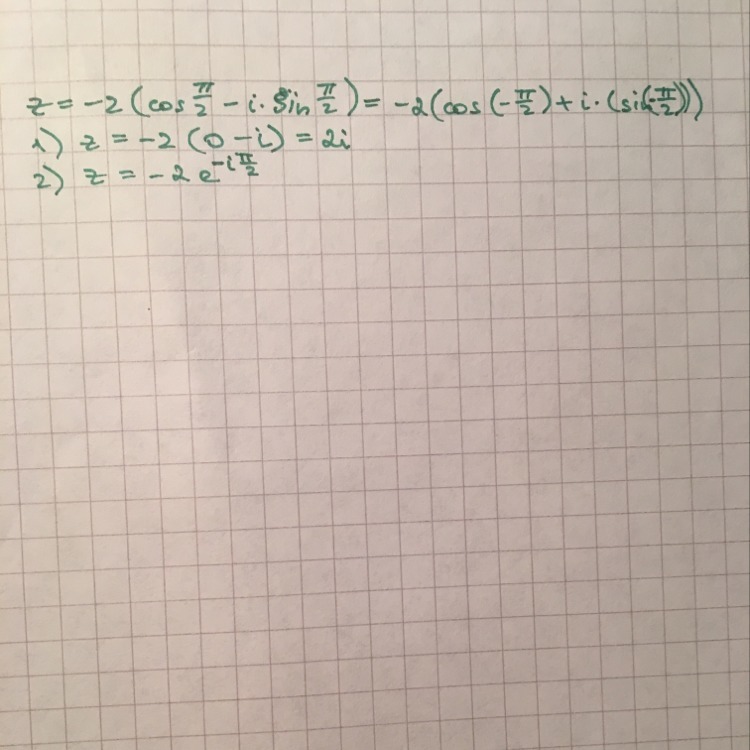 z = -2 (cos π/2 - i · sin π/2) = -2 (cos (-π/2) + i · (sin(-π/2)))
1) z = -2 (0 - i) = 2i
2) z = -2 e^{-i π/2}